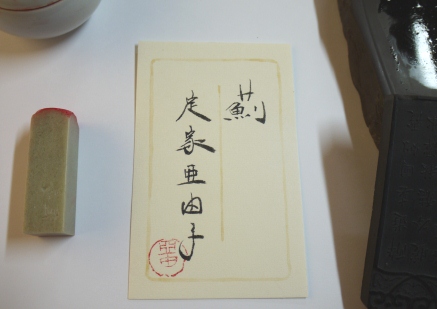 薊
定家亜由子